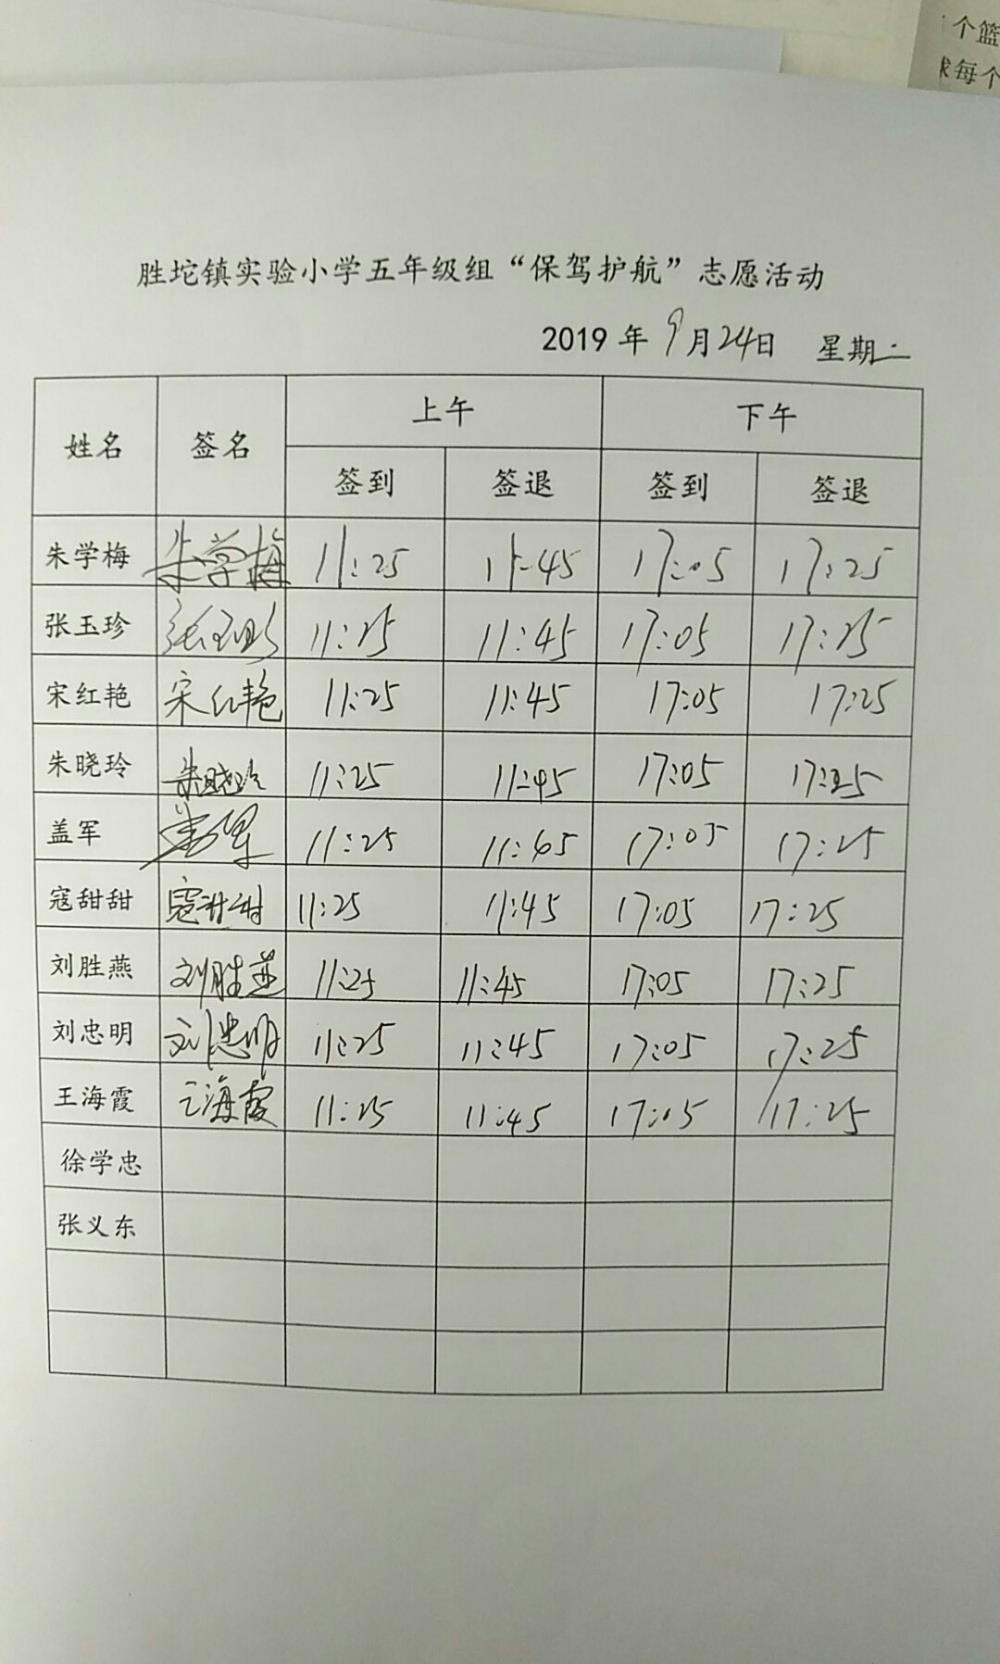 个篮
求每个
胜坨镇实验小学五年级组“保驾护航”志愿活动
2019 年 9月24日 星期二
姓名 签名 上午 下午
签到 签退 签到 签退
朱学梅 朱学梅 11:25 11:45 17:05 17:25
张玉珍 张玉珍 11:25 11:45 17:05 17:25
宋红艳 宋红艳 11:25 11:45 17:05 17:25
朱晓玲 朱晓玲 11:25 11:45 17:05 17:25
盖军 盖军 11:25 11:45 17:05 17:25
寇甜甜 寇甜甜 11:25 11:45 17:05 17:25
刘胜燕 刘胜燕 11:25 11:45 17:05 17:25
刘忠明 刘忠明 11:25 11:45 17:05 17:25
王海霞 王海霞 11:25 11:45 17:05 17:25
徐学忠
张义东